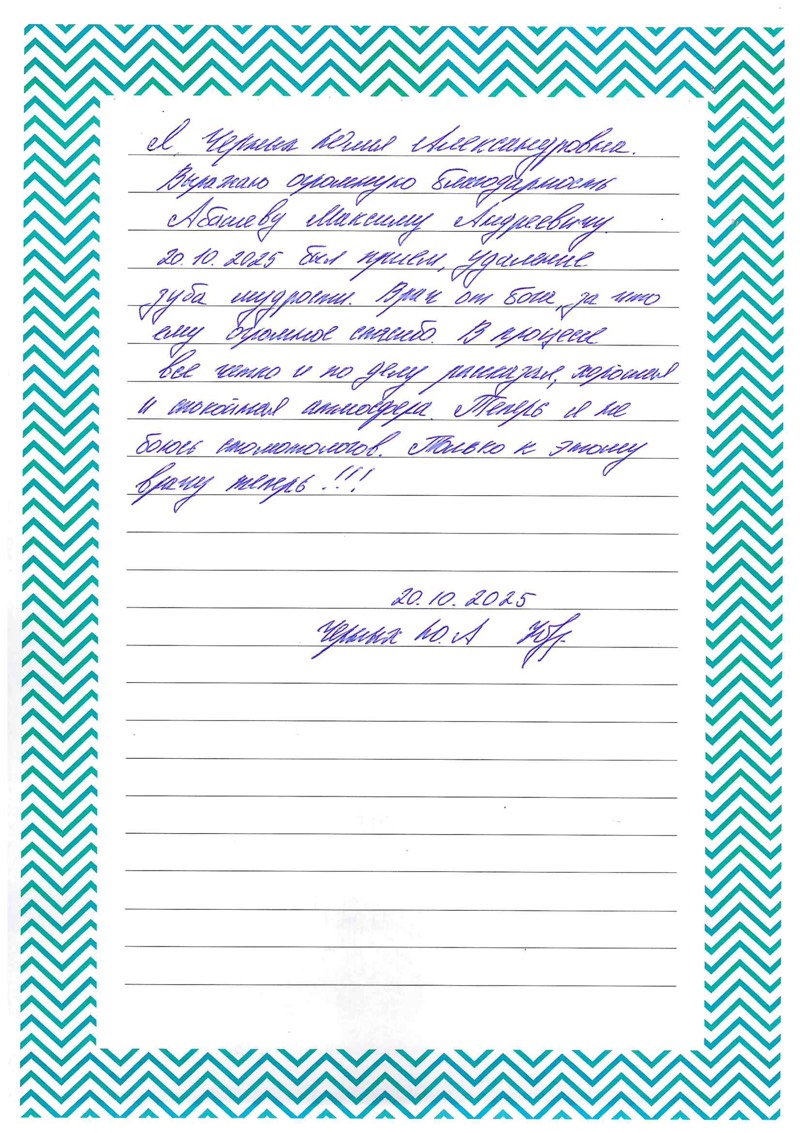 Я, Черных Юлия Александровна.
Выражаю огромную благодарность
Абашеву Максиму Андреевичу.
20.10.2025 был прием, удаление
зуба мудрости. Врач от бога, за что
ему огромное спасибо. В процессе
все четко и по делу рассказал, хорошая
и спокойная атмосфера. Теперь я не
боюсь стоматологов. Только к этому
врачу теперь!!!
20.10.2025
Черных Ю.А